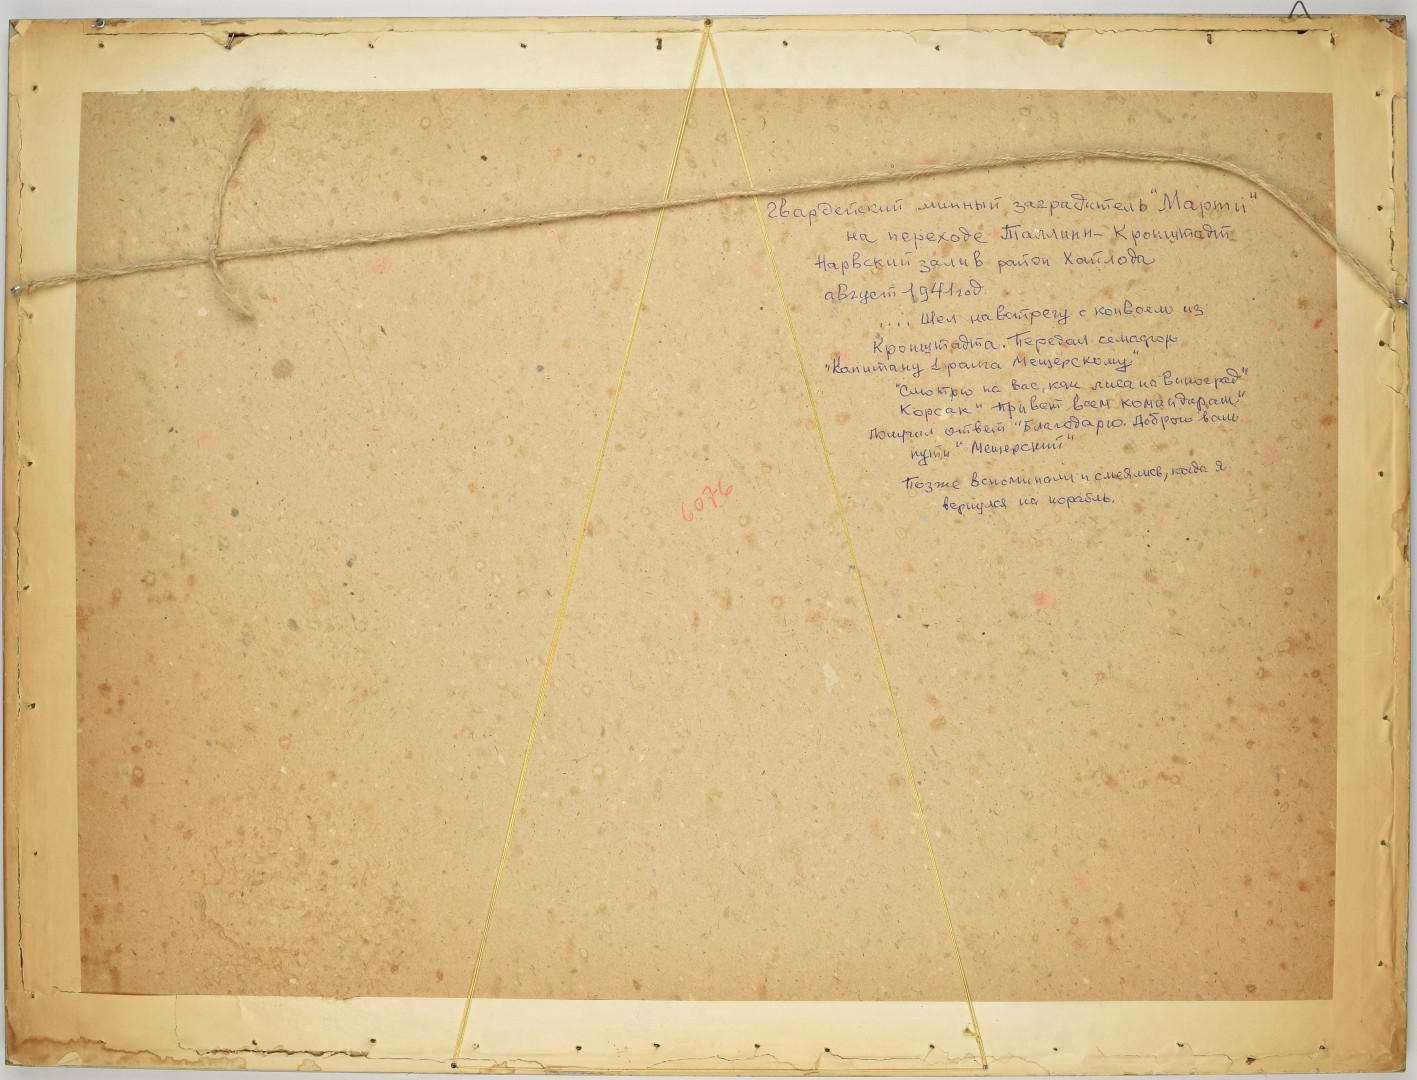 Гвардейский минный заградитель "Марти"
на переходе Таллинн-Кронштадт
Нарвский залив район Хайлода
август 1941 год
.... Шел навстречу с конвоем из
Кронштадта. Передал семафор
"Капитану 1 ранга Мещерскому"
"Смотрю на вас, как лиса на виноград"
Корсак" Привет всем командирам"
Получил ответ "Благодарю. Доброго вам
пути" Мещерский"
Позже вспоминали и смеялись, когда я
вернулся на корабль.
6076